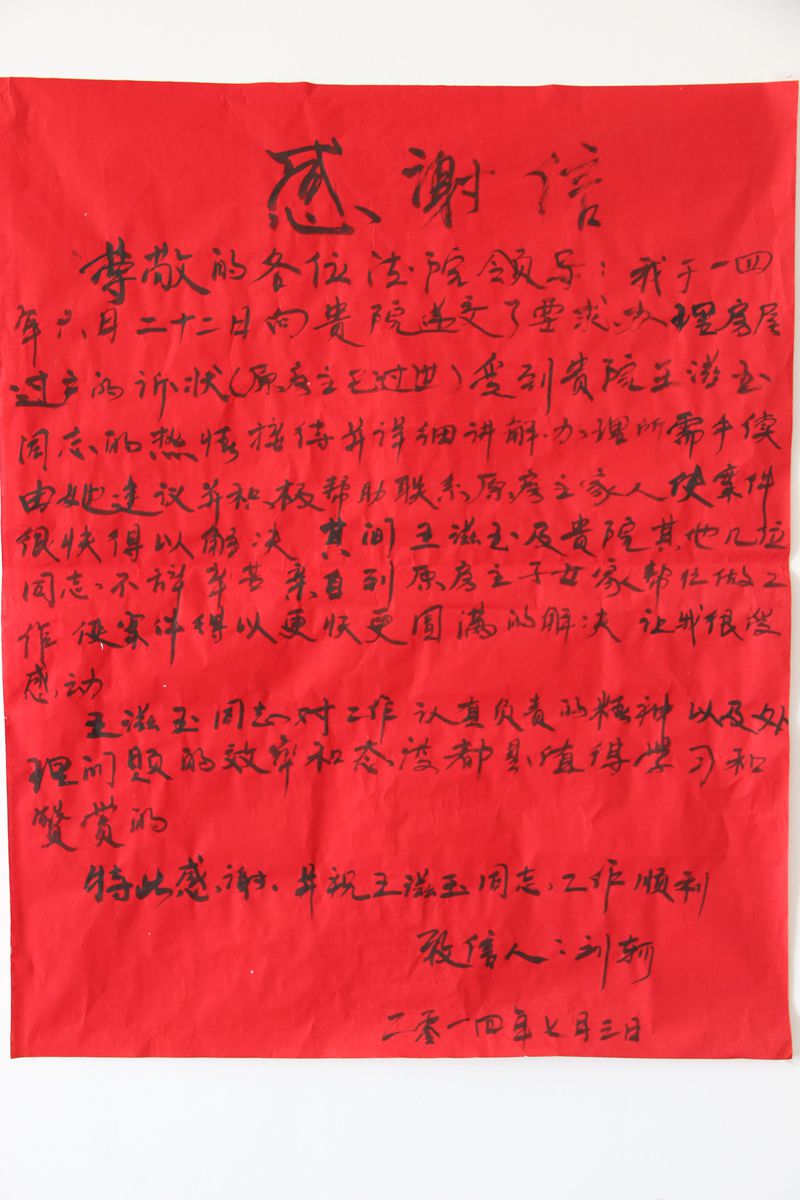 感谢信
尊敬的各位法院领导：我于一四
年六月二十二日向贵院递交了要求办理房屋
过户的诉状（原房主已过世）受到贵院王滋玉
同志的热情接待并详细讲解办理所需手续
由她建议并积极帮助联系原房主家人使案件
很快得以解决 其间王滋玉及贵院其他几位
同志、不辞辛苦亲自到原房主子女家帮忙做工
作 使案件得以更快更圆满的解决 让我很受
感动
王滋玉同志对工作认真负责的精神以及处
理问题的效率和态度都是值得学习和
赞赏的
特此感谢、并祝王滋玉同志、工作顺利
致信人：刘
二零一四年七月三日